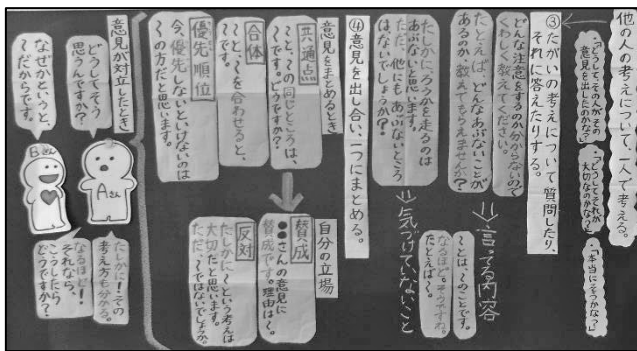 他の人の考えについて、一人で考える。
・「どうして、その人がその
意見を出したのかな？」
・「どうしてそれが
大切なのかな？」
・「本当にそうかな？」
③たがいの考えについて質問したり、
それに答えたりする。
どんな注意をするのか分からないので
くわしく教えてください。
たとえば、どんなあぶないことが
あるのか、教えてもらえませんか？
⇒言ってる内容
〜とは、〜のことです。
なるほど。そうですね。
たとえば〜。
たしかにろうかを走るのは
あぶないと思います。
ただ、他にもあぶないところ
はないでしょうか？
⇒気づけていないこと
④意見を出し合い、一つにまとめる。
意見をまとめるとき
共通点
〜と、〜の同じところは、
〜です。どうですか？
合体
〜と、〜を合わせると、
〜です。
優先順位
今、優先しないといけないのは
〜の方だと思います。
自分の立場
賛成
●●さんの意見に
賛成です。理由は〜。
反対
たしかに〜という考えは
大切だと思います。
ただ、〜ではないでしょうか。
意見が対立したとき
どうしてそう
思うんですか？
なぜかというと、
〜だからです。
Aさん
Bさん
たしかに！その
考え方も分かる。
なるほど！
それなら、
こうしたら
どうですか？